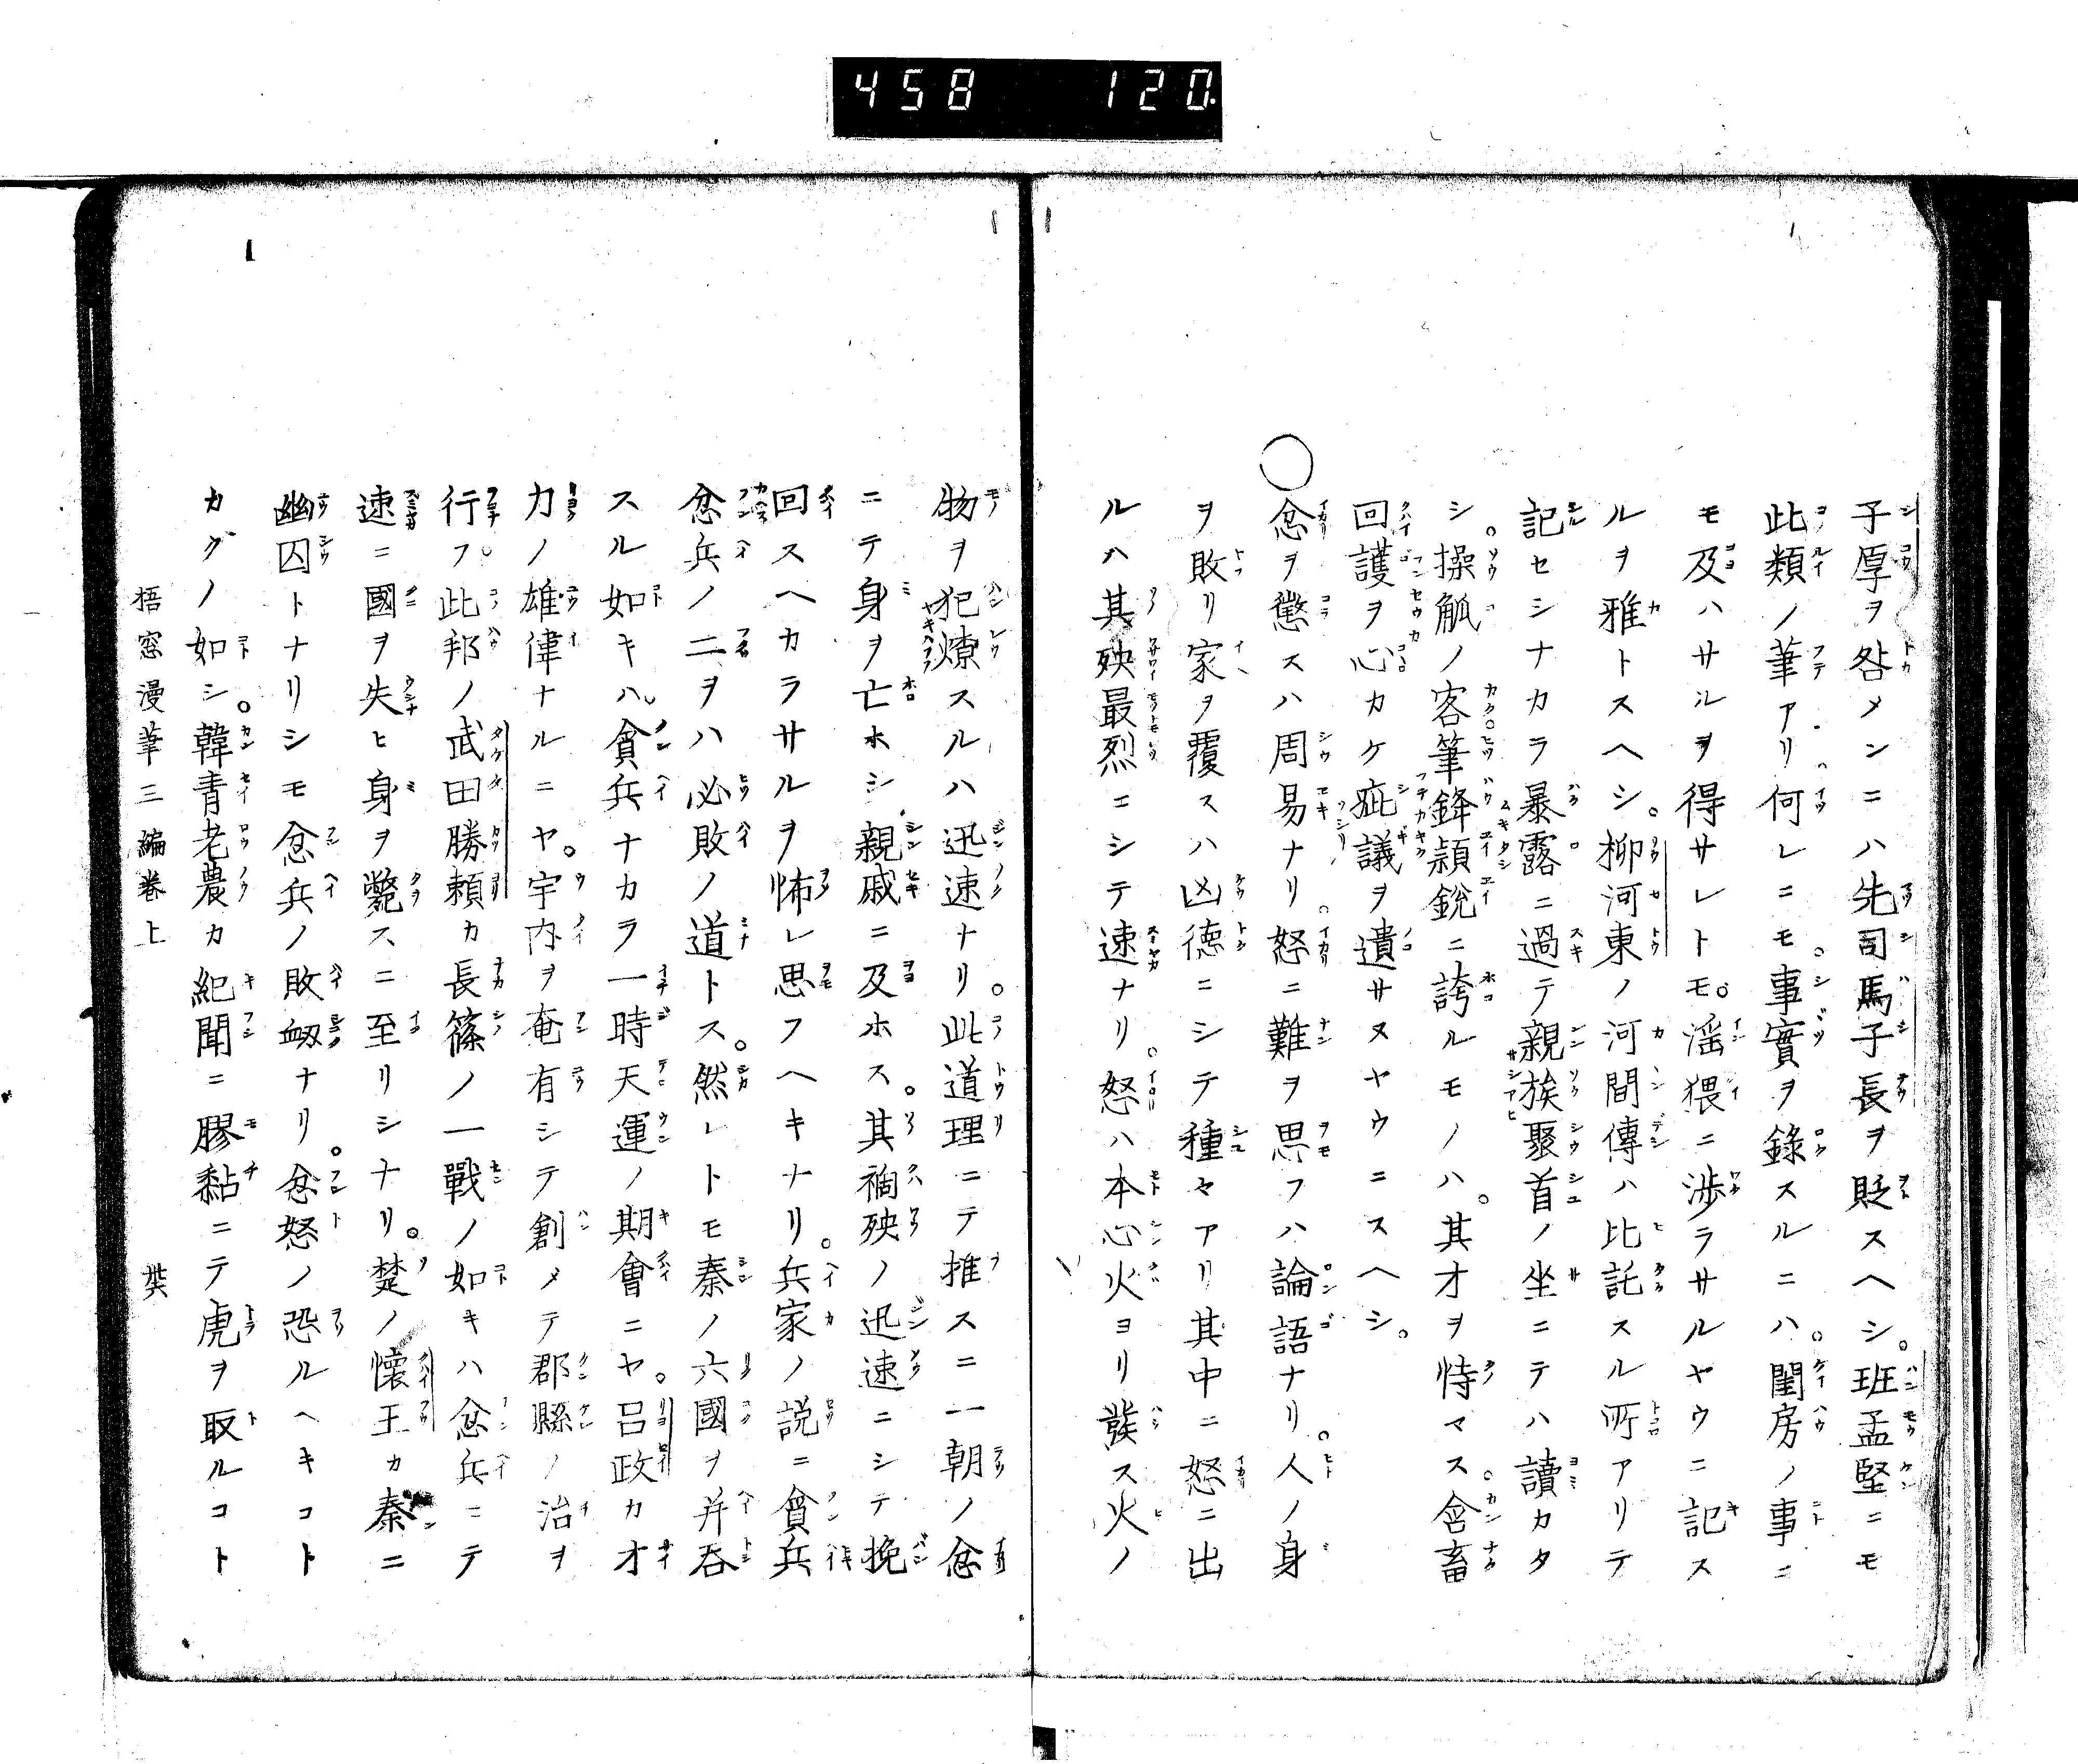 458 120
子厚ヲ咎メンニハ先司馬子長ヲ貶スヘシ。班孟堅ニモ
此類ノ筆アリ何レニモ。事實ヲ錄スルニハ。閨房ノ事ニ
モ及ハサルヲ得サレトモ。淫猥ニ渉ラサルヤウニ記ス
ルヲ雅トスヘシ。柳河東ノ河間傳ハ比託スル所アリテ
記セシナカラ暴露ニ過テ親族聚首ノ坐ニテハ讀カタ
シ。操觚ノ客筆鋒頴鋭ニ誇ルモノハ。其才ヲ恃マス。含畜
回護ヲ心カケ疵議ヲ遺サヌヤウニスヘシ。
○忿ヲ懲スハ周易ナリ。怒ニ難ヲ思フハ論語ナリ。人ノ身
ヲ敗リ家ヲ覆スハ凶德ニシテ種々アリ其中ニ怒ニ出
ルハ其殃最烈ニシテ速ナリ。怒ハ本心火ヨリ發ス火ノ
物ヲ犯燎スルハ迅速ナリ。此道理ニテ推スニ一朝ノ忿
ニテ身ヲ亡ホシ親戚ニ及ホス。其禍殃ノ迅速ニシテ挽
回スヘカラサルヲ怖レ思フヘキナリ。兵家ノ説ニ貪兵
忿兵ノ二ヲハ必敗ノ道トス。然レトモ秦ノ六國ヲ并呑
スル如キハ貪兵ナカラ一時天運ノ期會ニヤ。呂政カオ
力ノ雄偉ナルニヤ。宇内ヲ奄有シテ創メテ郡縣ノ治ヲ
行フ此邦ノ武田勝頼カ長篠ノ一戰ノ如キハ忿兵ニテ
速ニ國ヲ失ヒ身ヲ斃スニ至リシナリ。楚ノ懷王カ秦ニ
幽囚トナリシモ忿兵ノ敗衂ナリ。忿怒ノ恐ルヘキコト
カクノ如シ。韓青老農カ紀聞ニ膠黏ニテ虎ヲ取ルコト
梧窓漫筆三編卷上